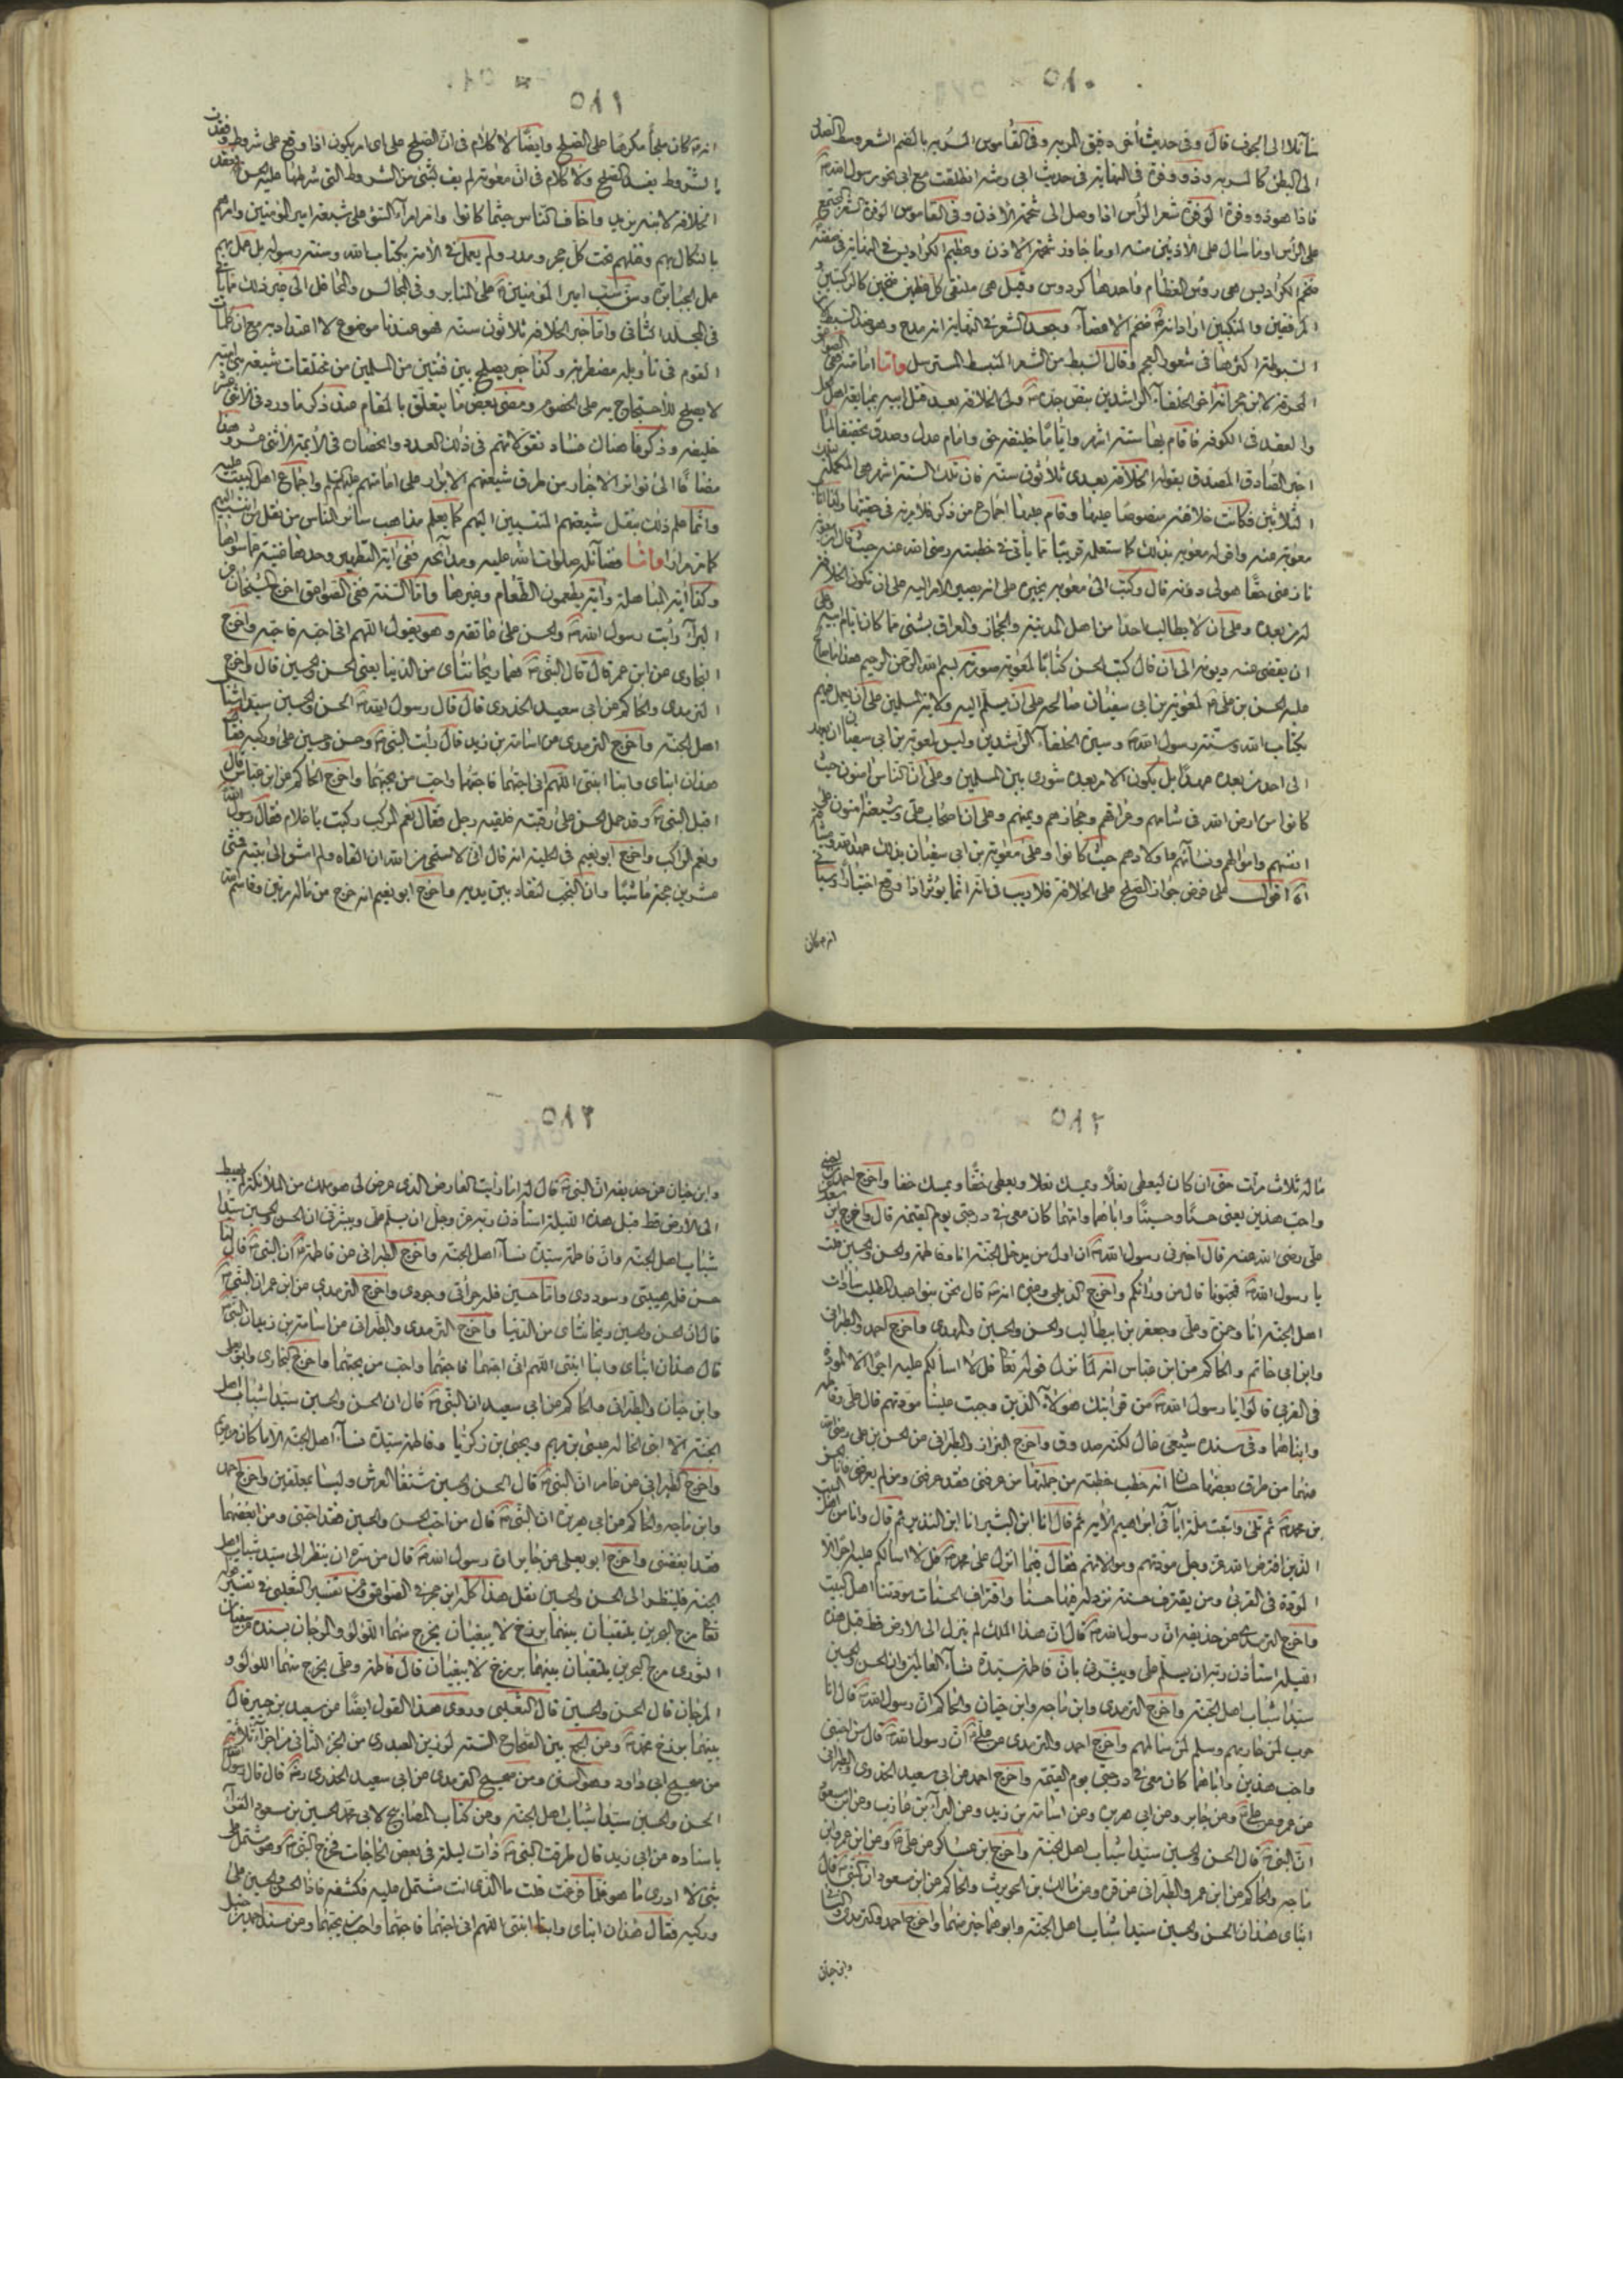 ٥٨٠
سآئلا الى الجوف قال وفى حديث أخر دقيق المسربه وفى القاموس المسربه بالضم الشعر وسط الصدر
الى البطن كالمسربه وذو وفرة فى النهاية فى حديث ابى رمثه انطلقت مع ابى نحو رسول الله
فاذا هو ذو وفرة الوفرة شعر الراس اذا وصل الى شحمة الاذن وفى القاموس الوفرة الشعر المجتمع
على الراس او ما سال على الاذنين منه او ما جاوز شحمة الاذن وعظيم الكراديس فى النهاية فى صفته
ضخم الكراديس هى رؤس العظام واحدها كردوس وقيل هى ملتقى كل عظمين ضخمين كالركبتين و
المرفقين والمنكبين اراد انه ضخم الاعضآء وجعد الشعر فى النهاية
السبوطة اكثرها فى شعور العجم وقال السبط من الشعر المنبسط المسترسل واما امامته ففى الصواعق
المحرقة لابن حجر انه اخر الخلفآء الراشدين بنص جده ولى الخلافة بعد قتل ابيه بمبايعة اهل
والعقد فى الكوفه فاقام بها ستة اشهر وايامًا خليفة حق وامام عدل وصدق تحقيقا لما
اخبر الصادق المصدق بقوله الخلافة بعدى ثلاثون سنة فان تلك الستة اشهر هى المكملة
لثلاثين فكانت خلافته منصوصا عليها وقام عليها اجماع من ذكر فلا مرية فى حقيتها
معوية عنه واقر له معوية بذلك كما ستعلمه قريبًا مما يأتى فى خطبته رضى الله عنه حيث قال ان معوية
نازعنى حقا هو لى دونه قال وكتب الى معوية يخبره على انه يصير الامر اليه على ان تكون الخلافة
له من بعده وعلى ان لا يطالب احدا من اهل المدينة والحجاز والعراق بشئ مما كان ايام ابيه وعلى
ان يقضى عنه ديونه الى ان قال كتب الحسن كتابًا لمعوية صورته بسم الله الرحمن الرحيم هذا ما صالح
عليه الحسن بن على لمعوية بن ابى سفيان صالحه على ان يسلم اليه ولاية المسلمين على ان يعمل فيهم
بكتاب الله وسنة رسول الله وسيرة الخلفآء الراشدين وليس لمعوية بن ابى سفيان ان يعهد
الى احد من بعده عهدًا بل يكون الامر بعده شورى بين المسلمين وعلى ان الناس امنون حيث
كانوا من ارض الله فى شامهم وعراقهم وحجازهم ويمنهم وعلى ان اصحاب على وشيعته امنون على
انفسهم واموالهم ونسآئهم واولادهم حيث كانوا وعلى معوية بن ابى سفيان بذلك عهد الله وميثاقه
اقول على فرض جواز الصلح على الخلافة فلا ريب فى انه انما يؤثر اذا وقع اختيارًا وسيأتى
انه كان
٥٨١
انه كان ملجأً مكرهًا على الصلح وايضًا لا كلام فى ان الصلح على اى امر يكون اذا وقع على شروط
الشروط يفسد الصلح ولا كلام فى ان معوية لم يف بشئ من الشروط التى شرطها عليه الحسن
الخلافة لابنه يزيد واخاف الناس حيثما كانوا وامر امرآء السوء على شيعة امير المؤمنين وامرهم
بالنكال بهم وقتلهم تحت كل حجر ومدر ولم يعمل فى الامة بكتاب الله وسنة رسوله بل عمل بهم
عمل الجبابرة وسن سب امير المؤمنين على المنابر وفى المجالس والمحافل الى غير ذلك
فى المجلد الثانى واما خبر الخلافة ثلاثون سنة فهو عندنا موضوع لا اعتداد به
القوم فى تأويله مضطربة وكذا خبر يصلح بين فئتين من المسلمين من مختلقات شيعة بنى امية
لا يصلح للاحتجاج به على الخصوم ومضى بعض ما يتعلق بالمقام عند ذكر ما ورد فى الاثنى عشر
خليفة وذكرنا هناك فساد تقولاتهم فى ذلك العدد وانحصاره فى الأيمة الاثنى عشر
مضافًا الى تواتر الاخبار من طرق شيعتهم الابرار على امامتهم واجماع اهل البيت عليه
وانما علم ذلك بنقل شيعتهم المنتسبين اليهم كما يعلم مذاهب سائر الناس من نقل من
كما مر مرارا واما فضآئله صلوات الله عليه ومدآئحه ففى اية التطهير وحدها غنية عما سواها
وكذا اية المباهلة واية يطعمون الطعام وغيرها واما السنة ففى الصواعق اخرج الشيخان عن
البرآء رأيت رسول الله والحسن على عاتقه وهو يقول اللهم انى احبه فاحبه واخرج
البخارى عن ابن عمر قال قال النبى هما ريحانتاى من الدنيا يعنى الحسن والحسين قال واخرج
الترمذى والحاكم عن ابى سعيد الخدرى قال قال رسول الله الحسن والحسين سيدا شباب
اهل الجنة واخرج الترمذى عن اسامة بن زيد قال رأيت النبى وحسن وحسين على وركيه فقال
هذان ابناى وابنا ابنتى اللهم انى احبهما فاحبهما واحب من يحبهما واخرج الحاكم عن ابن عباس قال
اقبل النبى وقد حمل الحسن على رقبته فلقيه رجل فقال نعم المركب ركبت يا غلام فقال رسول
ونعم الراكب واخرج ابو نعيم فى الحلية انه قال انى لاستحى من الله ان القاه ولم امش الى بيته فمشى
عشرين حجة ماشيًا وان النجب لتقاد بين يديه واخرج ابو نعيم انه خرج من ماله مرتين وقاسم الله
٥٨٢
ماله ثلاث مرات حتى ان كان ليعطى نعلًا ويمسك نعلا ويعطى خفًا ويمسك خفا واخرج احمد
واحب هذين يعنى حسنًا وحسينًا واباهما وامهما كان معى فى درجتى يوم القيمة قال واخرج ابن سعد
على رضى الله عنه قال اخبرنى رسول الله ان اول من يدخل الجنة انا وفاطمة والحسن والحسين قلت
يا رسول الله فمحبونا قال من ورائكم واخرج الديلمى وغيره انه قال نحن بنو عبد المطلب سادات
اهل الجنة انا وحمزة وعلى وجعفر بن ابيطالب والحسن والحسين والمهدى واخرج احمد والطبرانى
وابن ابى حاتم والحاكم عن ابن عباس انه لما نزل قوله تعالى قل لا اسألكم عليه اجرًا الا المودة
فى القربى قالوا يا رسول الله من قرابتك هؤلآء الذين وجبت علينا مودتهم قال على وفاطمة
وابناهما وفى سنده شيعى غال لكنه صدوق واخرج البزاز والطبرانى عن الحسن بن على رضى الله
عنهما من طرق بعضها حسان انه خطب خطبة من جملتها من عرفنى فقد عرفنى ومن لم يعرفنى فانا الحسن
بن محمد ثم تلى واتبعت ملة آبآئى ابراهيم الأية ثم قال انا ابن البشير انا ابن النذير ثم قال وانا من اهل البيت
الذين افترض الله عز وجل مودتهم وموالاتهم فقال فيما انزل على محمد قل لا اسألكم عليه اجرًا الا
المودة فى القربى ومن يقترف حسنة نزد له فيها حسنا واقتراف الحسنات مودتنا اهل البيت
واخرج الترمذى عن حذيفه ان رسول الله قال ان هذا الملك لم ينزل الى الارض قط قبل هذه
الليلة استأذن ربه ان يسلم على ويبشرنى بان فاطمة سيدة نسآء العالمين وان الحسن والحسين
سيدا شباب اهل الجنة واخرج الترمذى وابن ماجه وابن حبان والحاكم ان رسول الله قال انا
حرب لمن حاربهم وسلم لمن سالمهم واخرج احمد والترمذى عن على ان رسول الله قال من احبنى
واحب هذين واباهما كان معى فى درجتى يوم القيمة واخرج احمد عن ابى سعيد الخدرى والطبرانى
عن عمر وعن على وعن جابر وعن ابى هريرة وعن اسامة بن زيد وعن البرآء بن عازب وعن ابن مسعود
ان النبى قال الحسن والحسين سيدا شباب اهل الجنة واخرج ابن عساكر عن على وعن ابن عمر وابن
ماجه والحاكم عن ابن عمر والطبرانى عن قرة وعن مالك بن الحويرث والحاكم عن ابن مسعود ان النبى قال
ابناى هذان الحسن والحسين سيدا شباب اهل الجنة وابوهما خير منهما واخرج احمد والترمذى والنسائى
وابن حبان
٥٨٣
وابن حبان عن حذيفة ان النبى قال له اما رأيت العارض الذى عرض لى هو ملك من الملائكة لم يهبط
الى الارض قط قبل هذه الليلة استأذن ربه عز وجل ان يسلم على ويبشرنى ان الحسن والحسين سيدا
شباب اهل الجنة وان فاطمة سيدة نسآء اهل الجنة واخرج الطبرانى عن فاطمة ان النبى قال اما
حسن فله هيبتى وسوددى واما حسين فله جرأتى وجودى واخرج الترمذى عن ابن عمر ان النبى
قال ان الحسن والحسين ريحانتاى من الدنيا واخرج الترمذى والطبرانى عن اسامة بن زيد ان النبى
قال هذان ابناى وابنا ابنتى اللهم انى احبهما فاحبهما واحب من يحبهما واخرج البخارى وابو يعلى
وابن حبان والطبرانى والحاكم عن ابى سعيد ان النبى قال ان الحسن والحسين سيدا شباب اهل
الجنة الا ابنى الخالة عيسى بن مريم ويحيى بن زكريا وفاطمة سيدة نسآء اهل الجنة الا ما كان من مريم
واخرج الطبرانى عن عامر ان النبى قال الحسن والحسين شنفا العرش وليسا بمعلقين واخرج احمد
وابن ماجه والحاكم عن ابى هريرة ان النبى قال من احب الحسن والحسين فقد احبنى ومن ابغضهما
فقد ابغضنى واخرج ابو يعلى عن جابر ان رسول الله قال من سره ان ينظر الى سيد شباب اهل
الجنة فلينظر الى الحسن والحسين نقل هذا كله ابن حجر فى الصواعق وفى تفسير الثعلبى فى تفسير قوله
تعالى مرج البحرين يلتقيان بينهما برزخ لا يبغيان يخرج منهما اللؤلؤ والمرجان بسنده عن سفيان
الثورى مرج البحرين يلتقيان بينهما برزخ لا يبغيان قال فاطمة وعلى يخرج منهما اللؤلؤ و
المرجان قال الحسن والحسين قال الثعلبى وروى هذا القول ايضًا عن سعيد بن جبير قال
بينهما برزخ محمد ومن الجمع بين الصحاح الستة لرزين العبدرى من الجزء الثانى من اجزآء ثلاثة
من صحيح ابى داود وهو السنن ومن صحيح الترمذى عن ابى سعيد الخدرى قال قال رسول
الحسن والحسين سيدا شباب اهل الجنة ومن كتاب المصابيح لابى محمد الحسين بن مسعود الفراء
باسناده عن ابى زيد قال طرقت النبى ذات ليلة فى بعض الحاجات فخرج النبى وهو مشتمل على
شئ لا ادرى ما هو فلما فرغت قلت ما الذى انت مشتمل عليه فكشفه فاذا الحسن والحسين على
وركيه فقال هذان ابناى وابنا ابنتى اللهم انى احبهما فاحبهما واحب من يحبهما ومن مسند احمد بن حنبل